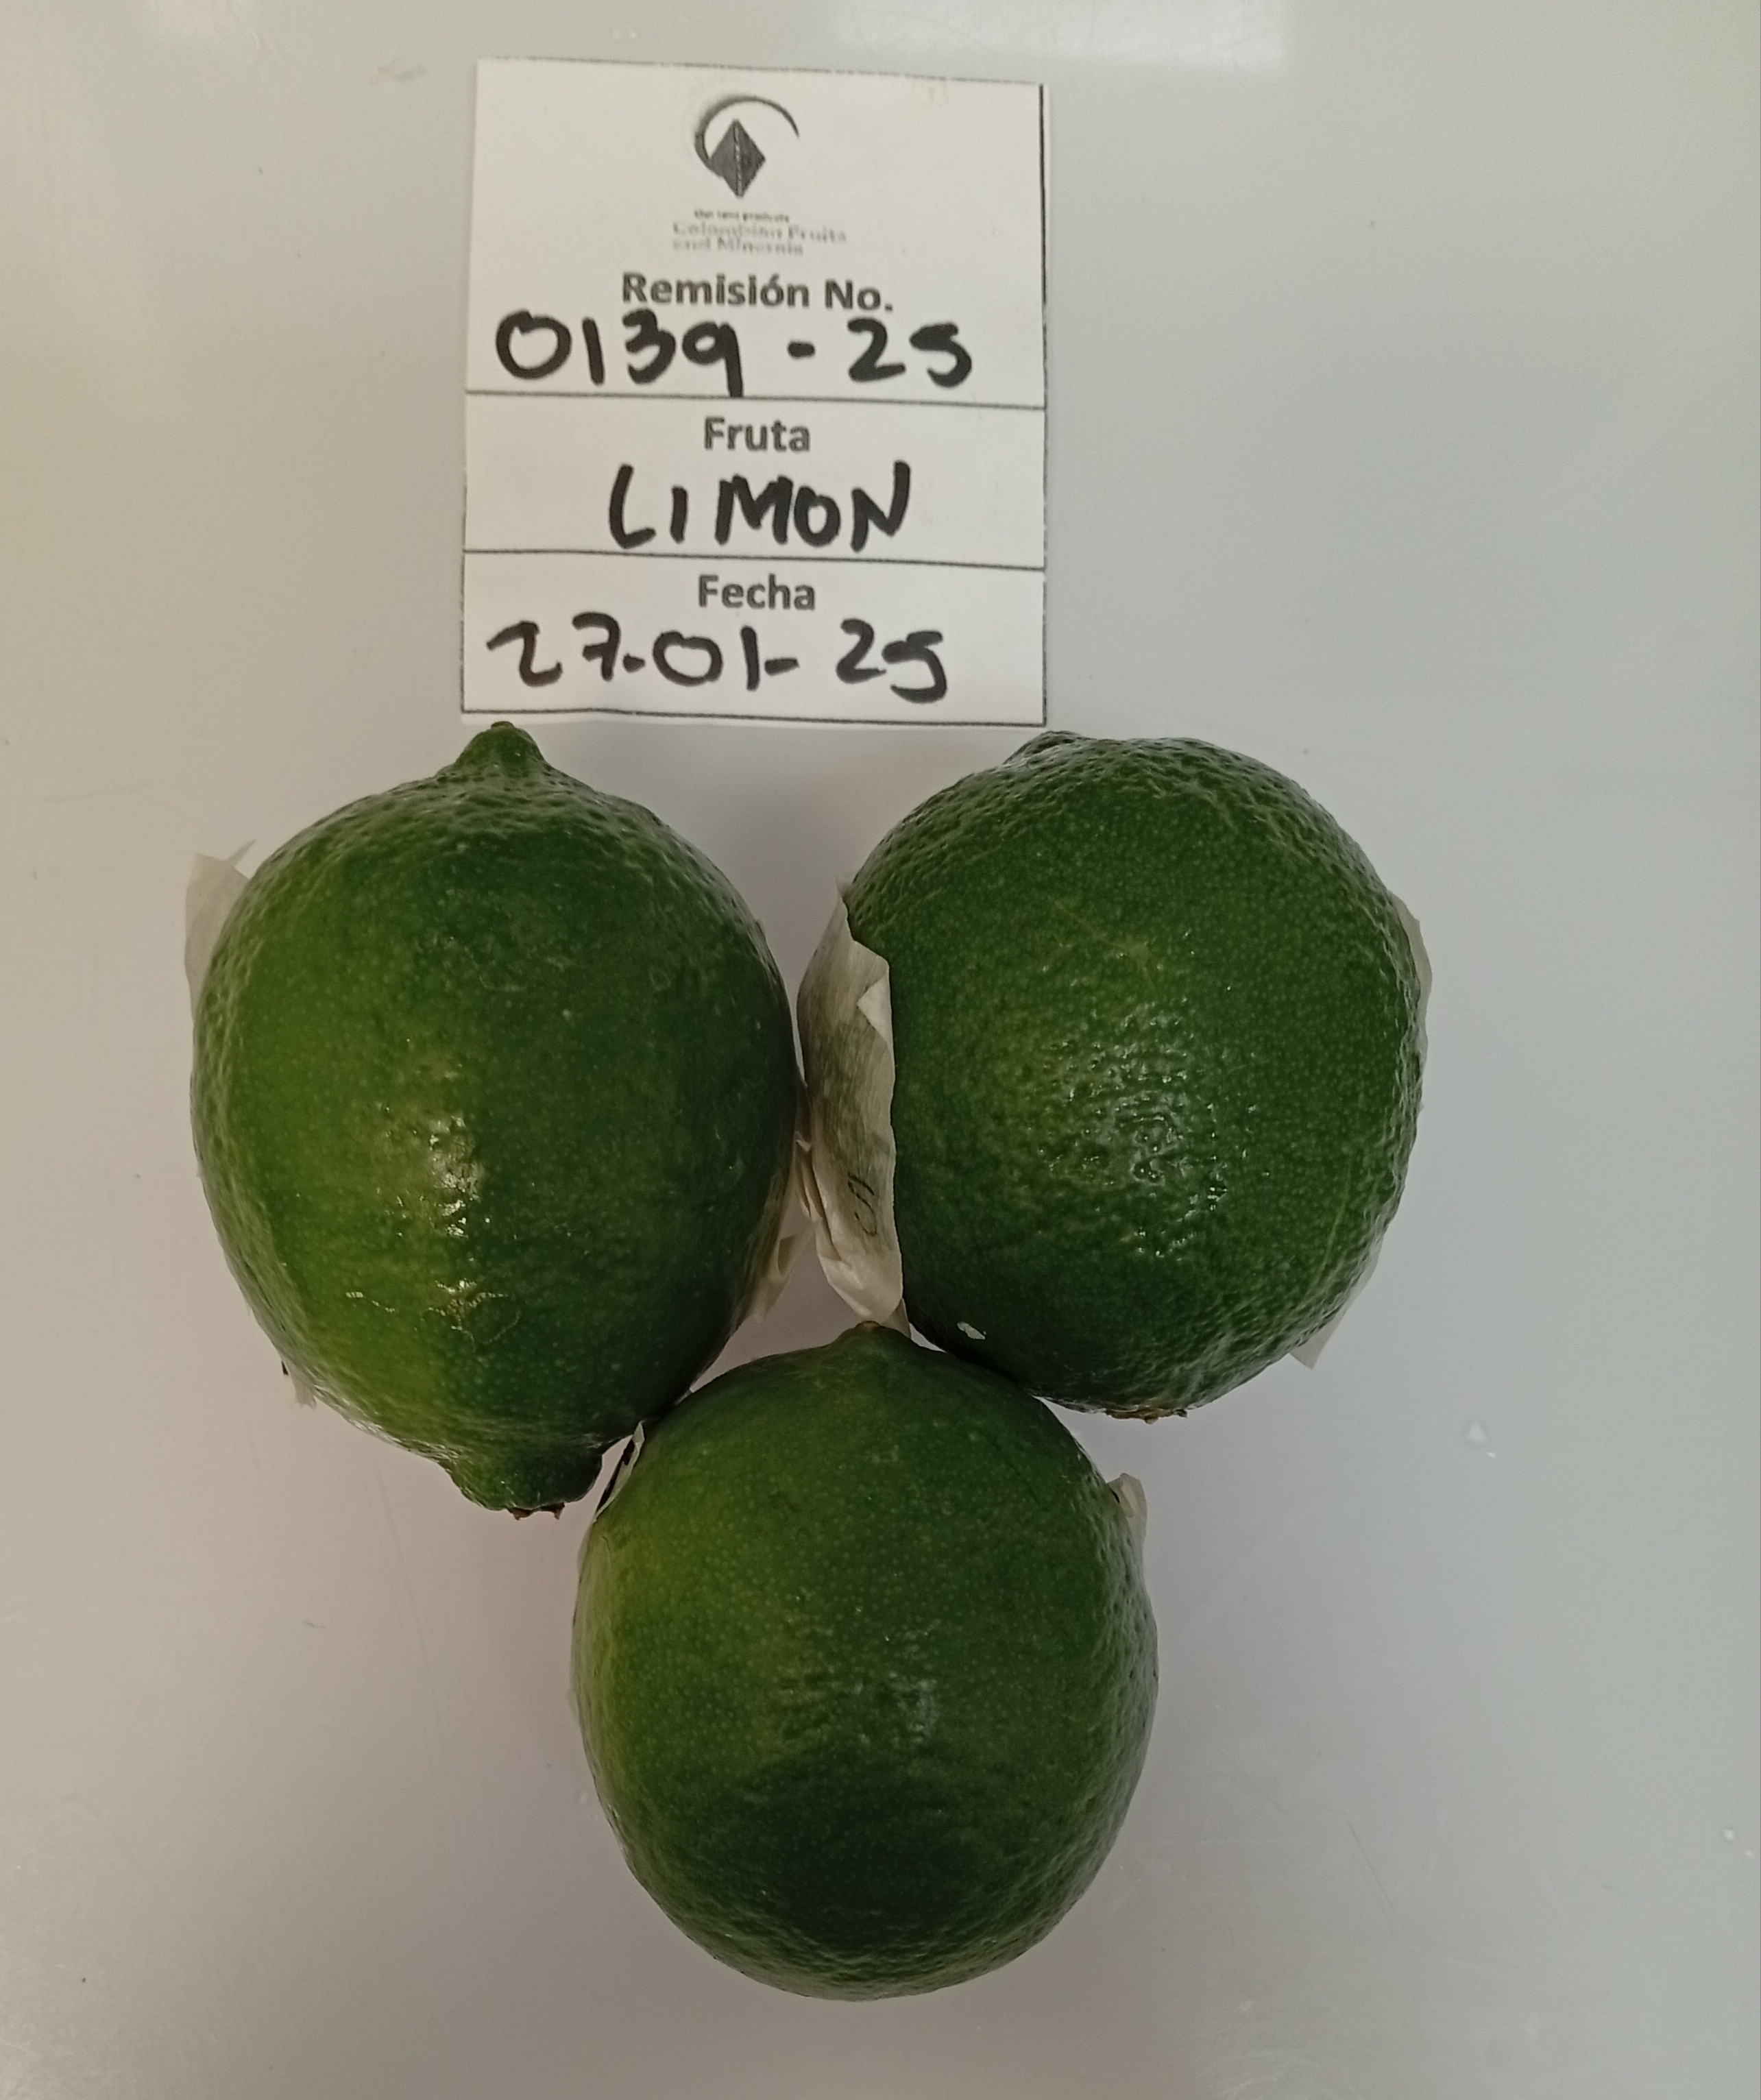 Colombian Fruits
and Minerals
Remisión No.
0139 - 25
Fruta
LIMON
Fecha
27-01-25